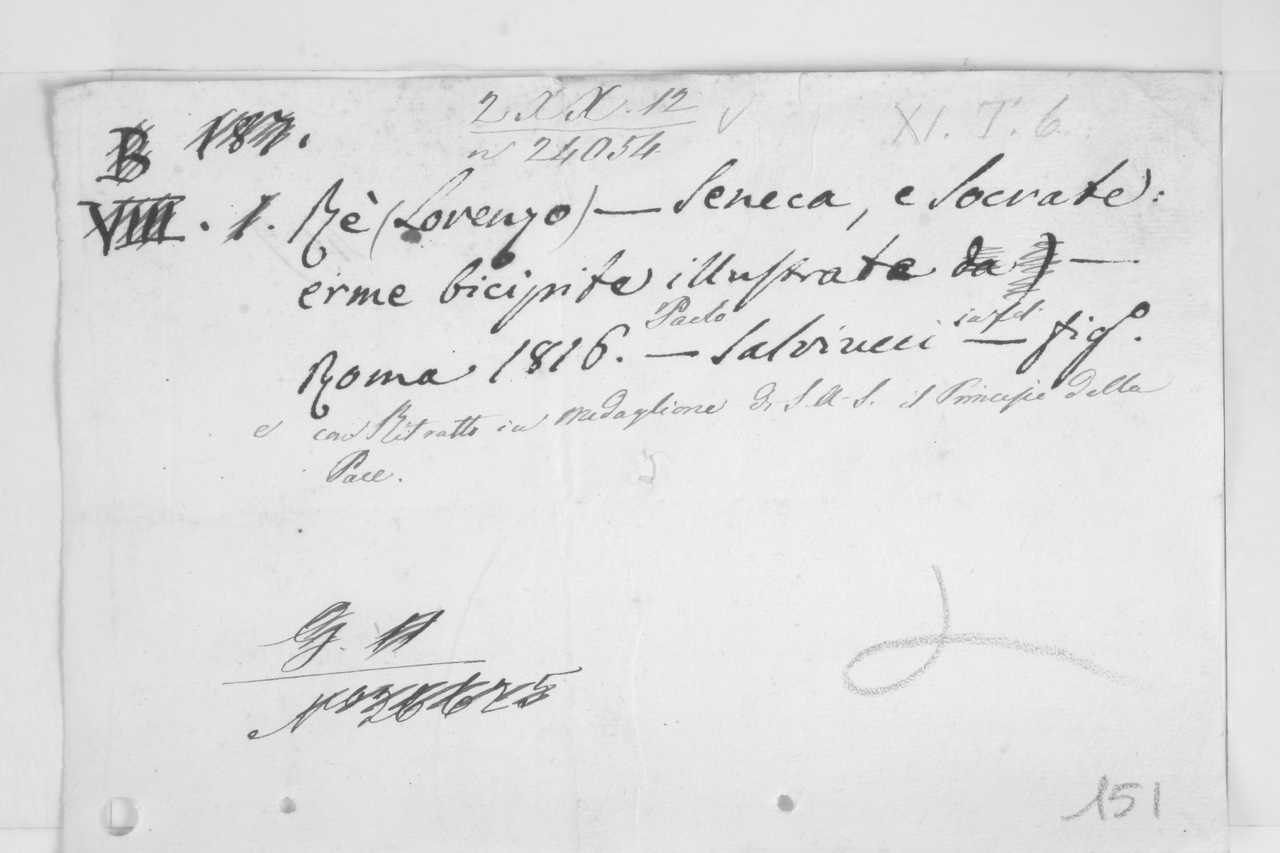 2 XX. 12
XI. T. 6.
B 187.
n 24054
VIII. 1. Rè (Lorenzo) — Seneca, e Socrate:
erme bicipite illustrate da —
Paolo in fol.
Roma 1816. — Salviucci — fig.º
e con Ritratto in medaglione di S. A. S. il Principe della
Pace.
G.
Nº
151